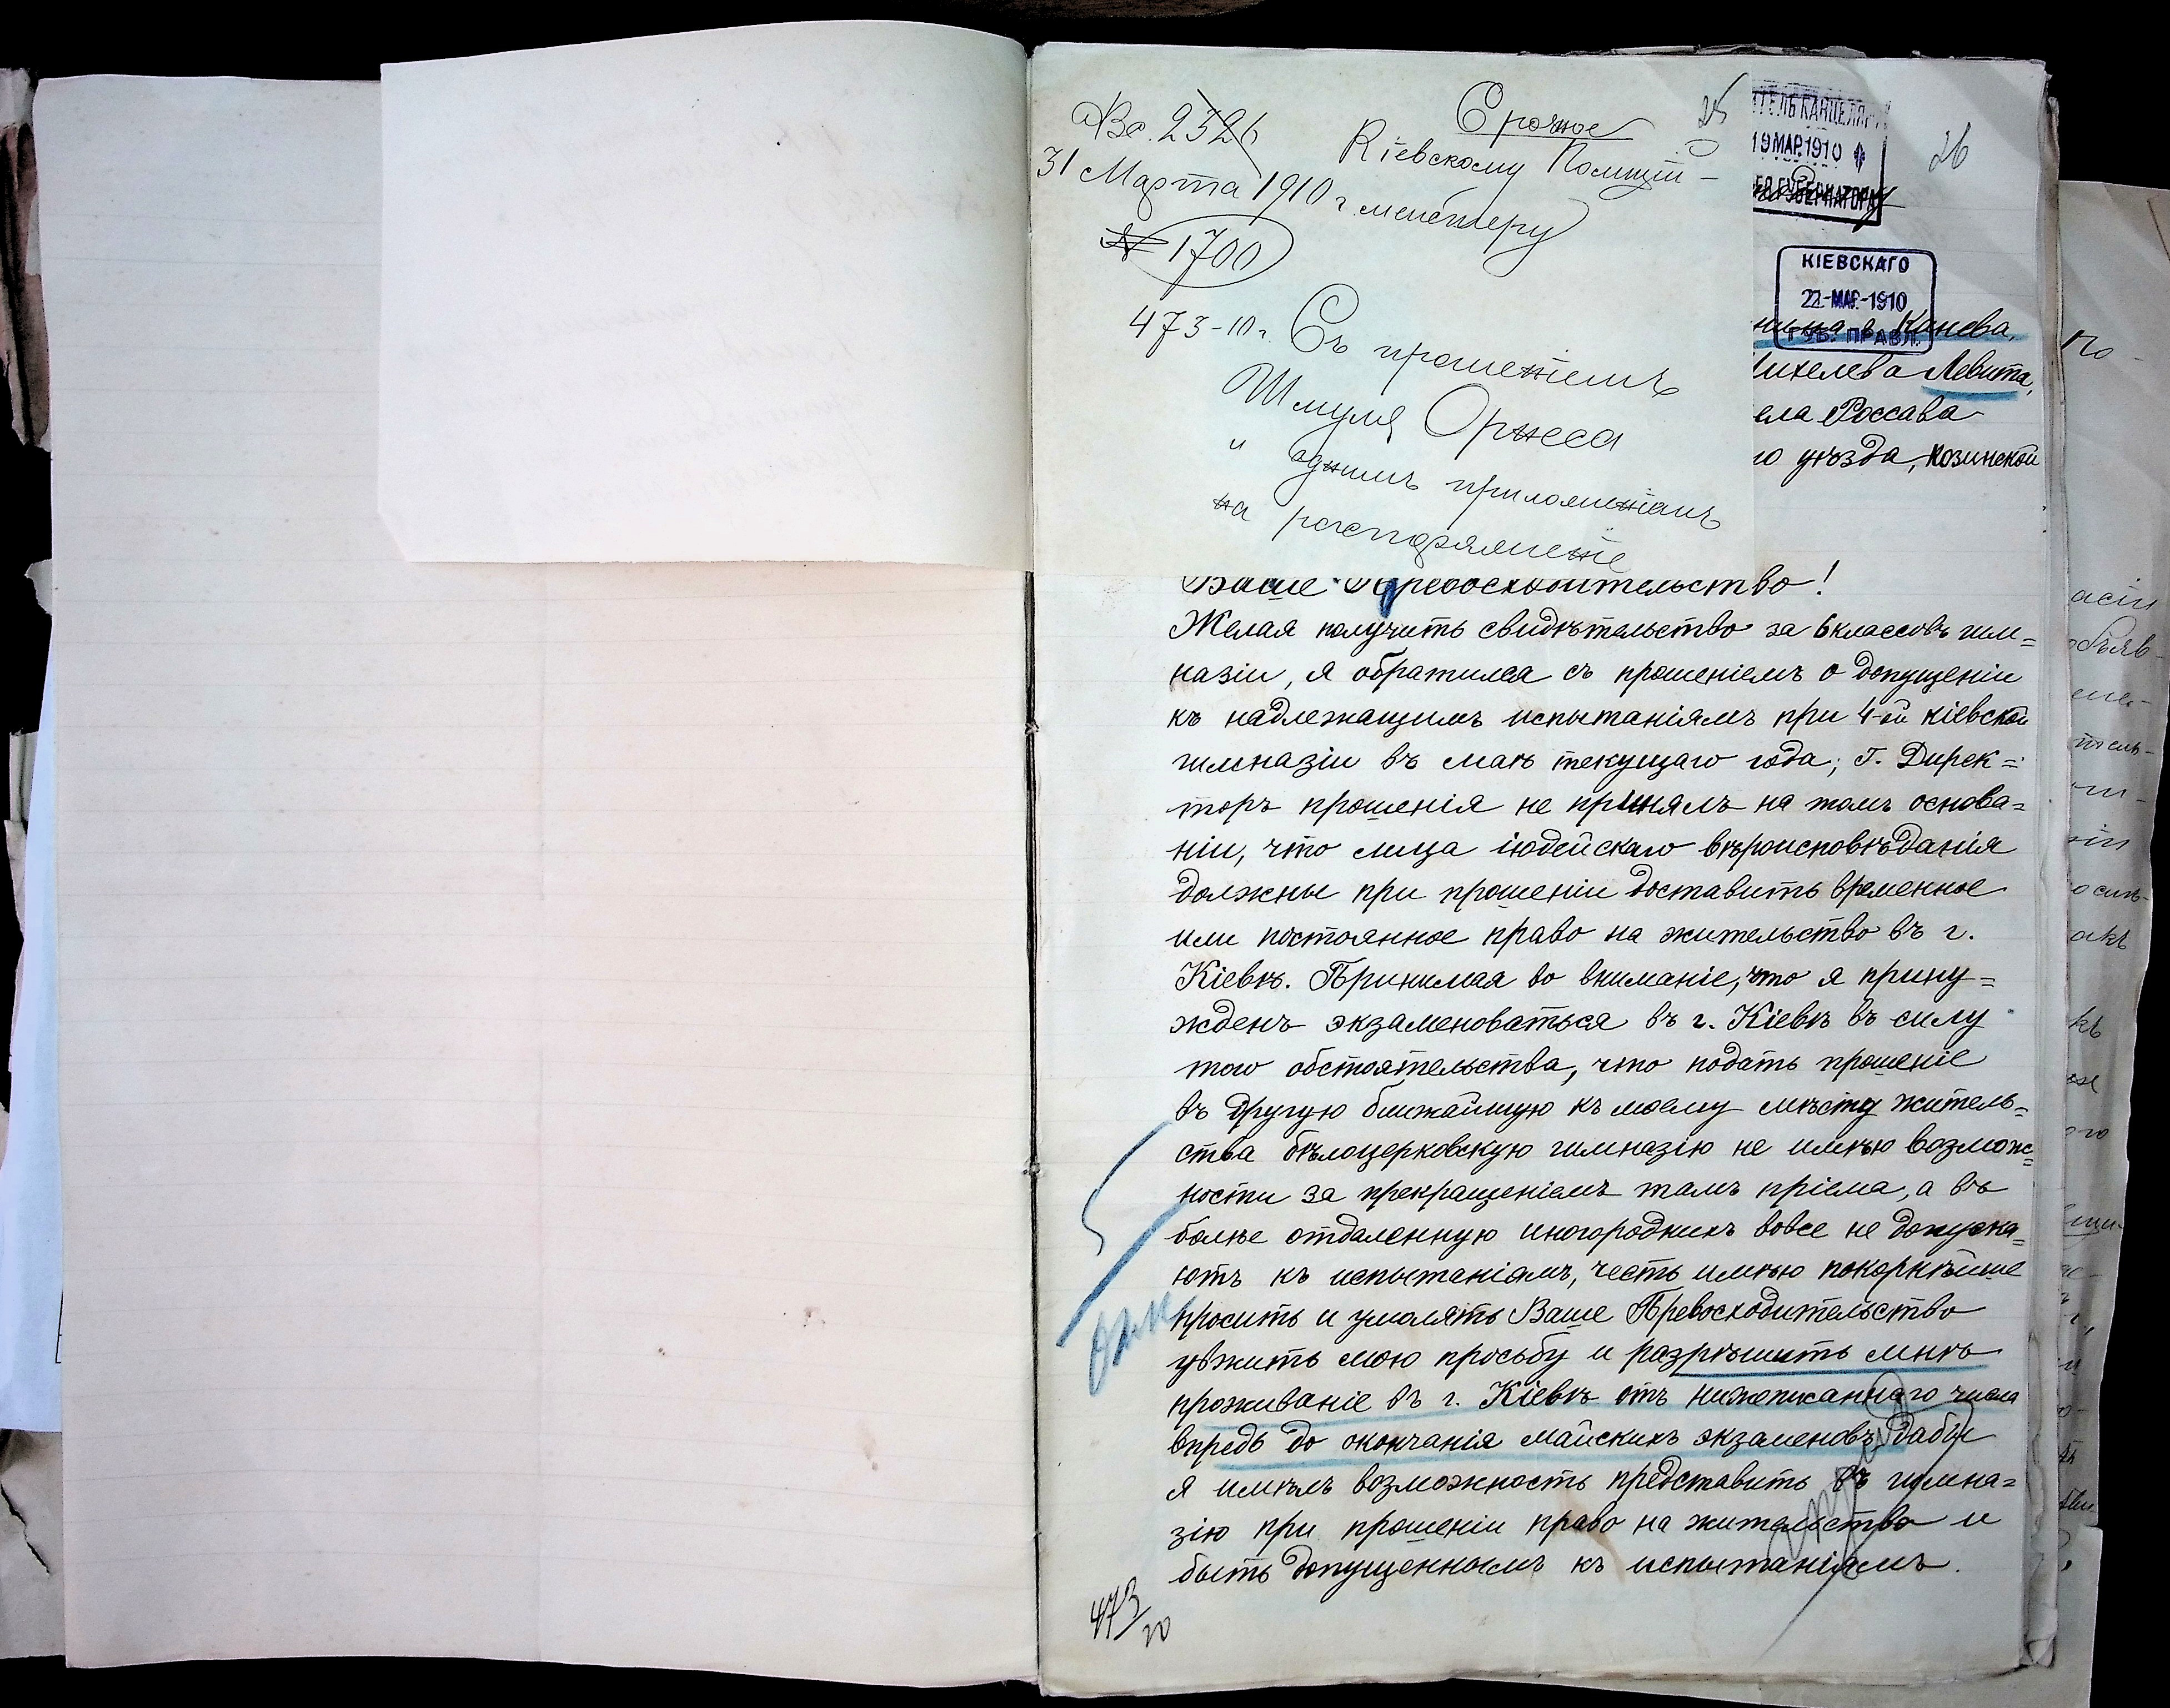 Вс. 2526
31 Марта 1910 г.
№ 1700
Срочное
Кіевскому Полиций-
мейстеру
473-10 г. Съ прошеніемъ
Шмуля
и однимъ приложеніемъ
на распоряженіе
25
26
ИТЕЛЬ КАНЦЕЛЯРІ
19 МАР. 1910
ГО ГУБЕРНАТОРА
КІЕВСКАГО
22-МАР.-1910
ГУБ. ПРАВЛ.
нина г. Канева,
ихелева Левита,
ела Россава
го уѣзда, Козинской
Ваше Превосходительство!
Желая получить свидѣтельство за 6 классовъ гим=
назіи, я обратился съ прошеніемъ о допущеніи
къ надлежащимъ испытаніямъ при 4-ой кіевской
гимназіи въ маѣ текущаго года; Г. Дирек=
торъ прошенія не принялъ на томъ основа=
ніи, что лица іюдейскаго вѣроисповѣданія
должны при прошеніи доставить временное
или постоянное право на жительство въ г.
Кіевѣ. Принимая во вниманіе, что я прину=
жденъ экзаменоваться въ г. Кіевѣ въ силу
того обстоятельства, что подать прошеніе
въ другую ближайшую къ моему мѣсту житель=
ства бѣлоцерковскую гимназію не имѣю возмож=
ности за прекращеніемъ тамъ пріема, а въ
болѣе отдаленную иногороднихъ вовсе не допуска=
ютъ къ испытаніямъ, честь имѣю покорнѣйше
просить и умолять Ваше Превосходительство
увжить мою просьбу и разрѣшить мнѣ
проживаніе въ г. Кіевѣ отъ нижеписаннаго числа
впредь до окончанія майскихъ экзаменовъ, дабы
я имѣлъ возможность представить въ гимна=
зію при прошеніи право на жительство и
быть допущеннымъ къ испытаніямъ.
473/10
по-
асіи
объяв-